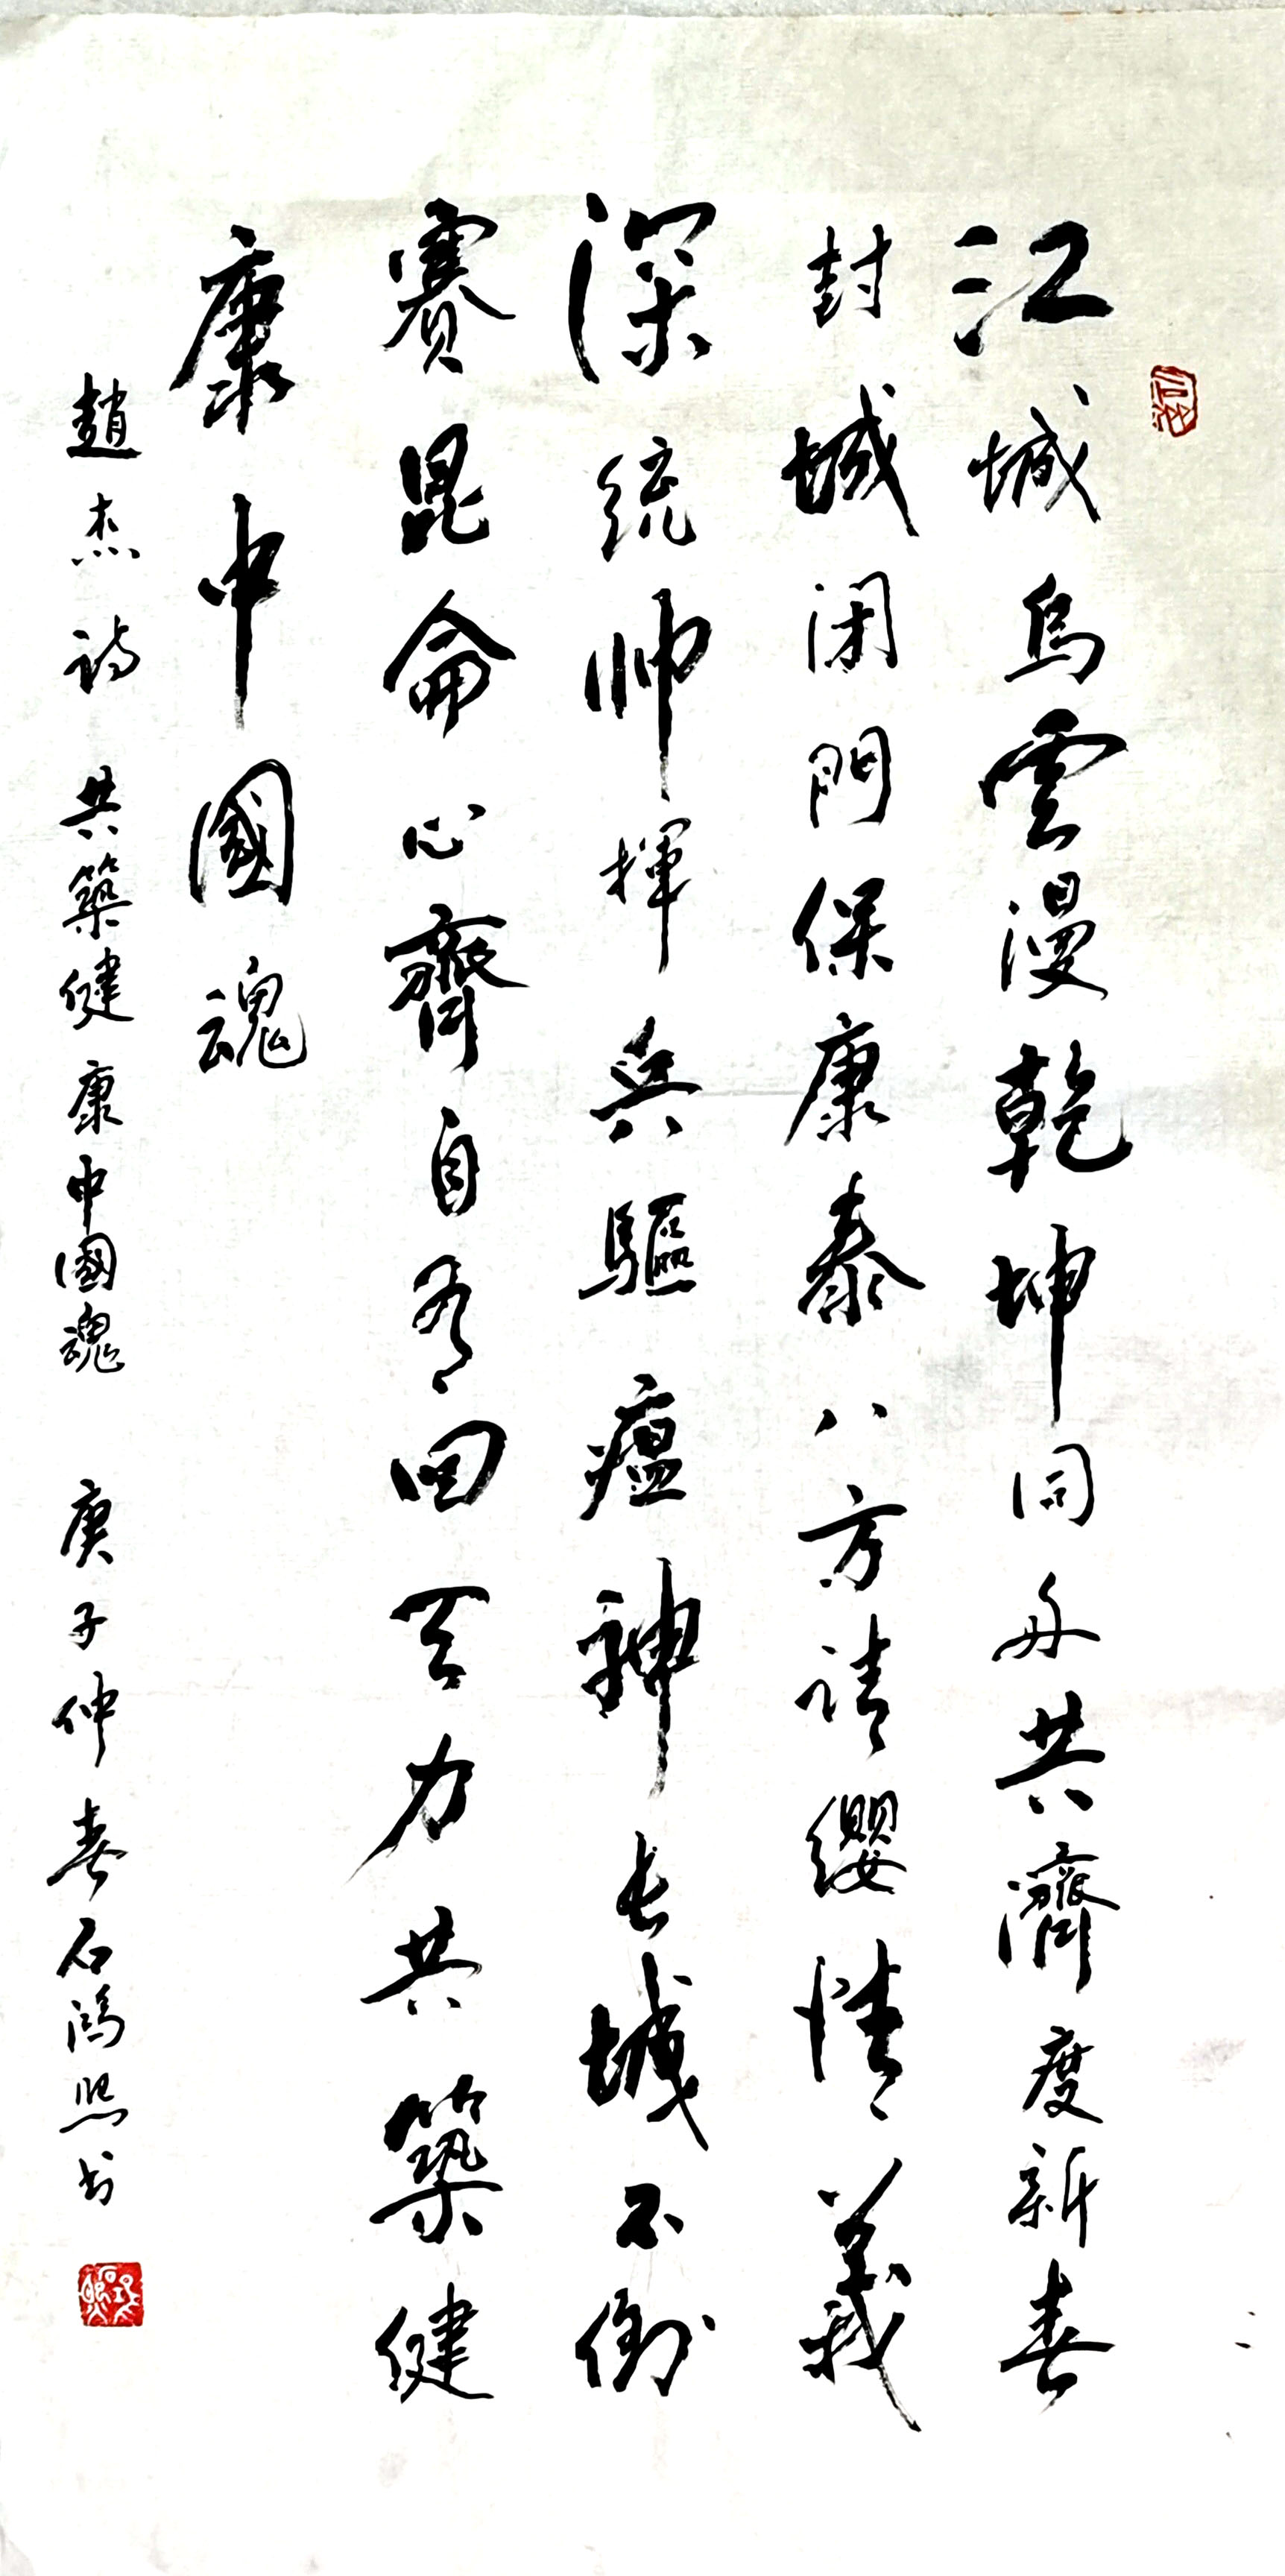 江城烏雲漫乾坤同舟共濟度新春
封城闭門保康泰八方请纓情義
深統帅揮兵驅瘟神长城不倒
賽昆侖心齊自有回天力共築健
康中國魂
趙杰诗 共築健康中國魂 庚子仲春石鴻熙书